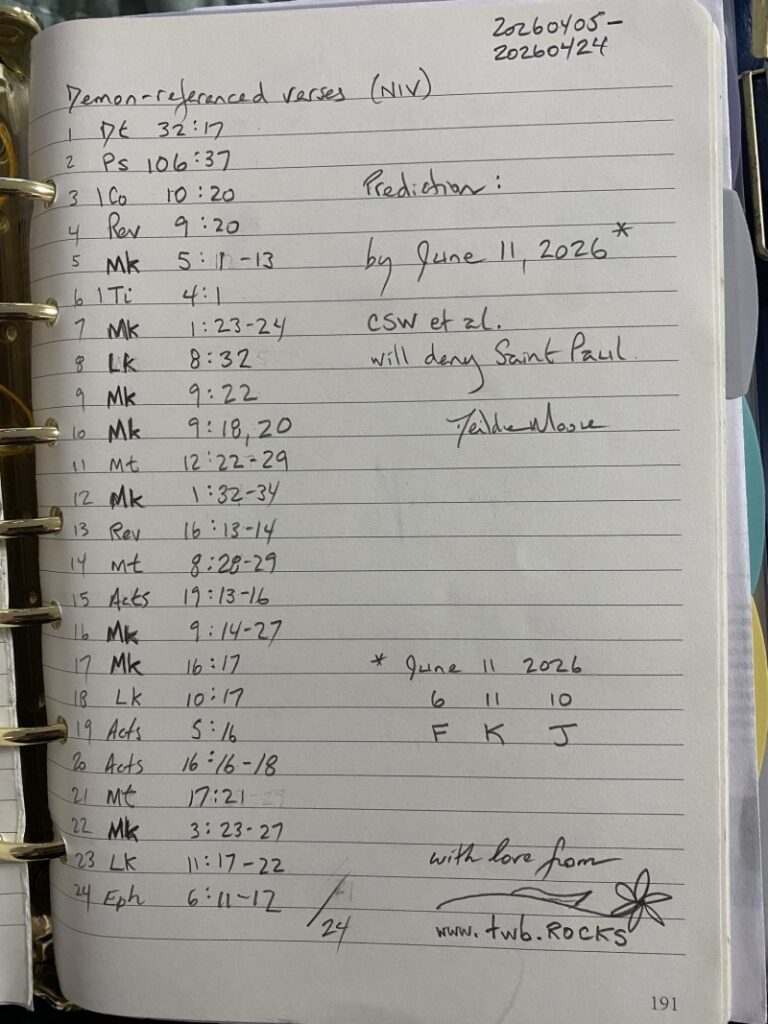 20260405-
20260424
Demon-referenced verses (NIV)
1 Dt 32:17
2 Ps 106:37
3 1 Co 10:20
4 Rev 9:20
5 Mk 5:11-13
6 1 Ti 4:1
7 Mk 1:23-24
8 Lk 8:32
9 Mk 9:22
10 Mk 9:18,20
11 Mt 12:22-29
12 Mk 1:32-34
13 Rev 16:13-14
14 Mt 8:28-29
15 Acts 19:13-16
16 Mk 9:14-27
17 Mk 16:17
18 Lk 10:17
19 Acts 5:16
20 Acts 16:16-18
21 Mt 17:21
22 Mk 3:23-27
23 Lk 11:17-22
24 Eph 6:11-12
/24
Prediction:
by June 11, 2026*
CSW et al.
will deny Saint Paul
* June 11 2026
6 11 10
F K J
with love from
www.twb.ROCKS
191